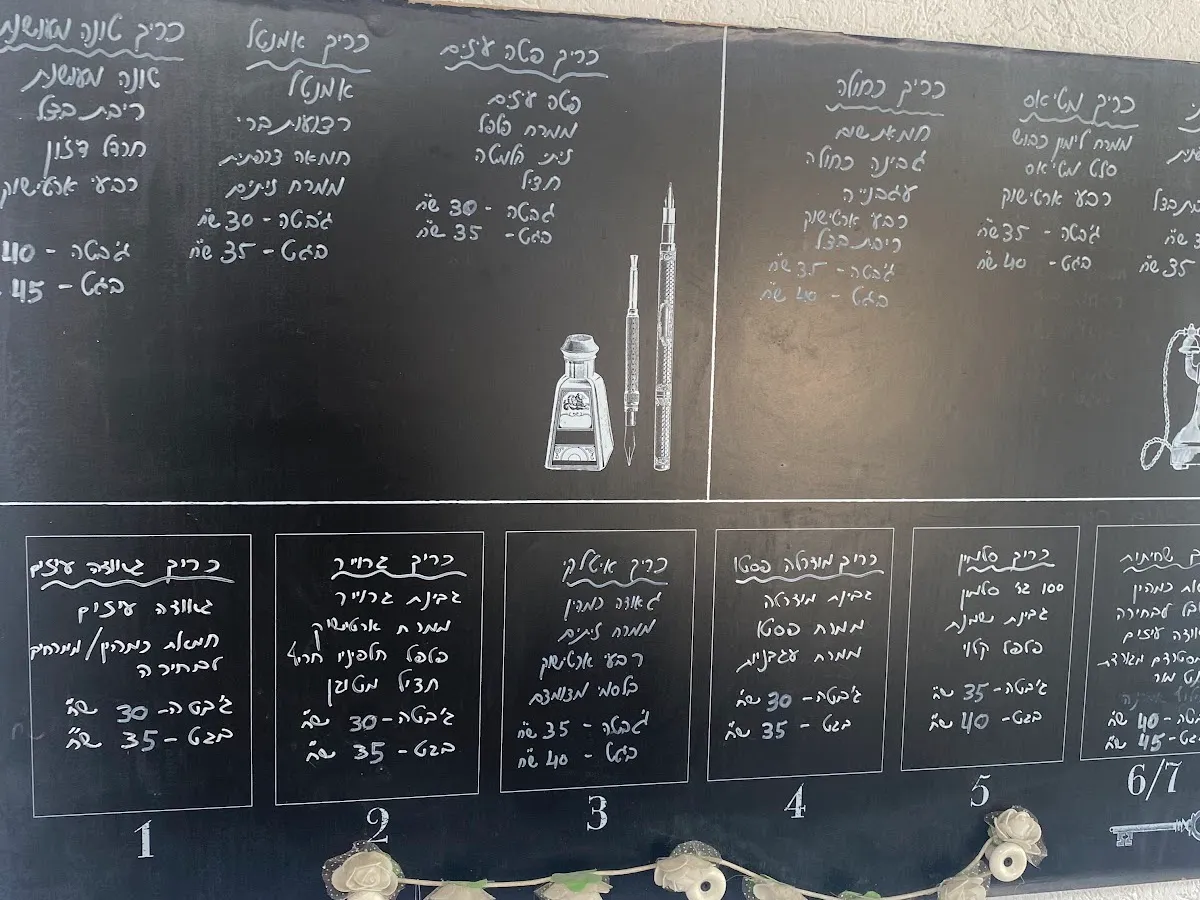 כריך טונה מעושנת
טונה מעושנת
ריבת בצל
חרדל דיז'ון
רבעי ארטישוק
ג'בטה - 40
בגט - 45
כריך אמנטל
אמנטל
רצועות ברי
חמאה צרפתית
ממרח זיתים
ג'בטה - 30 ש"ח
בגט - 35 ש"ח
כריך פטה עיזים
פטה עיזים
ממרח פלפל
זיתי קלמטה
חציל
ג'בטה - 30 ש"ח
בגט - 35 ש"ח
כריך כחולה
חמאת שום
גבינה כחולה
עגבנייה
רבעי ארטישוק
ריבת בצל
ג'בטה - 35 ש"ח
בגט - 40 ש"ח
כריך מטיאס
ממרח לימון כבוש
סלט מטיאס
רבעי ארטישוק
ג'בטה - 35 ש"ח
בגט - 40 ש"ח
בצל
35 ש"ח
כריך גאודה עיזים
גאודה עיזים
חמאת כמהין/ממרחים
לבחירה
ג'בטה - 30 ש"ח
בגט - 35 ש"ח
1
כריך גרוייר
גבינת גרוייר
ממרח ארטישוק
פלפל חלפניו חריף
חציל מטוגן
ג'בטה - 30 ש"ח
בגט - 35 ש"ח
2
כריך איטלקי
גאודה כמהין
ממרח זיתים
רבעי ארטישוק
בלסמי מצומצם
ג'בטה - 35 ש"ח
בגט - 40 ש"ח
3
כריך מוצרלה פסטו
גבינת מוצרלה
ממרח פסטו
ממרח עגבניות
ג'בטה - 30 ש"ח
בגט - 35 ש"ח
4
כריך סלמון
100 גר סלמון
גבינת שמנת
פלפל קלוי
ג'בטה - 35 ש"ח
בגט - 40 ש"ח
5
שחיתות
כמהין
לבחירה
עיזים
מגורדת
40 ש"ח
45 ש"ח
6/7